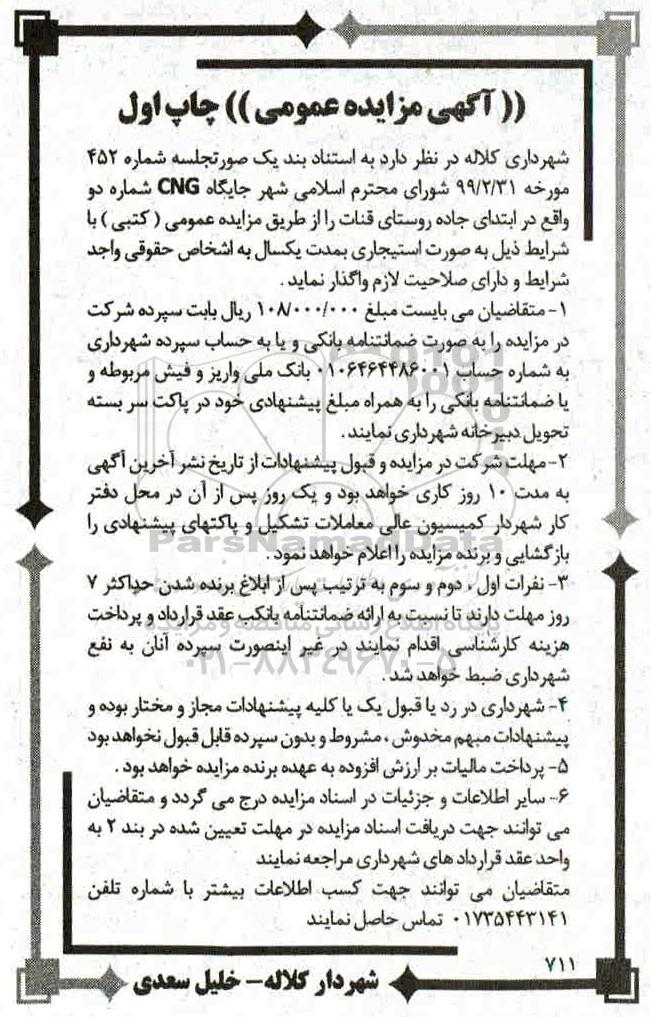 (( آگهی مزایده عمومی )) چاپ اول
شهرداری کلاله در نظر دارد به استناد بند یک صورتجلسه شماره ۴۵۲
مورخه ۹۹/۲/۳۱ شورای محترم اسلامی شهر جایگاه CNG شماره دو
واقع در ابتدای جاده روستای قنات را از طریق مزایده عمومی ( کتبی ) با
شرایط ذیل به صورت استیجاری بمدت یکسال به اشخاص حقوقی واجد
شرایط و دارای صلاحیت لازم واگذار نماید .
۱- متقاضیان می بایست مبلغ ۱۰۸/۰۰۰/۰۰۰ ریال بابت سپرده شرکت
در مزایده را به صورت ضمانتنامه بانکی و یا به حساب سپرده شهرداری
به شماره حساب ۰۱۰۶۴۶۴۴۸۶۰۰۱ بانک ملی واریز و فیش مربوطه و
یا ضمانتنامه بانکی را به همراه مبلغ پیشنهادی خود در پاکت سر بسته
تحویل دبیرخانه شهرداری نمایند .
۲- مهلت شرکت در مزایده و قبول پیشنهادات از تاریخ نشر آخرین آگهی
به مدت ۱۰ روز کاری خواهد بود و یک روز پس از آن در محل دفتر
کار شهردار کمیسیون عالی معاملات تشکیل و پاکتهای پیشنهادی را
بازگشایی و برنده مزایده را اعلام خواهد نمود .
ParsNamadData
۳- نفرات اول ، دوم و سوم به ترتیب پس از ابلاغ برنده شدن حداکثر ۷
روز مهلت دارند تا نسبت به ارائه ضمانتنامه بانکب عقد قرارداد و پرداخت
پایگاه اطلاع رسانی مناقصه و مزایده
هزینه کارشناسی اقدام نمایند در غیر اینصورت سپرده آنان به نفع
۰۲۱-۸۸۳۴۹۶۷۰-۵
شهرداری ضبط خواهد شد .
۴- شهرداری در رد یا قبول یک یا کلیه پیشنهادات مجاز و مختار بوده و
پیشنهادات مبهم مخدوش ، مشروط و بدون سپرده قابل قبول نخواهد بود
۵- پرداخت مالیات بر ارزش افزوده به عهده برنده مزایده خواهد بود .
۶- سایر اطلاعات و جزئیات در اسناد مزایده درج می گردد و متقاضیان
می توانند جهت دریافت اسناد مزایده در مهلت تعیین شده در بند ۲ به
واحد عقد قرارداد های شهرداری مراجعه نمایند
متقاضیان می توانند جهت کسب اطلاعات بیشتر با شماره تلفن
۰۱۷۳۵۴۴۳۱۴۱ تماس حاصل نمایند
۷۱۱
شهردار کلاله- خلیل سعدی